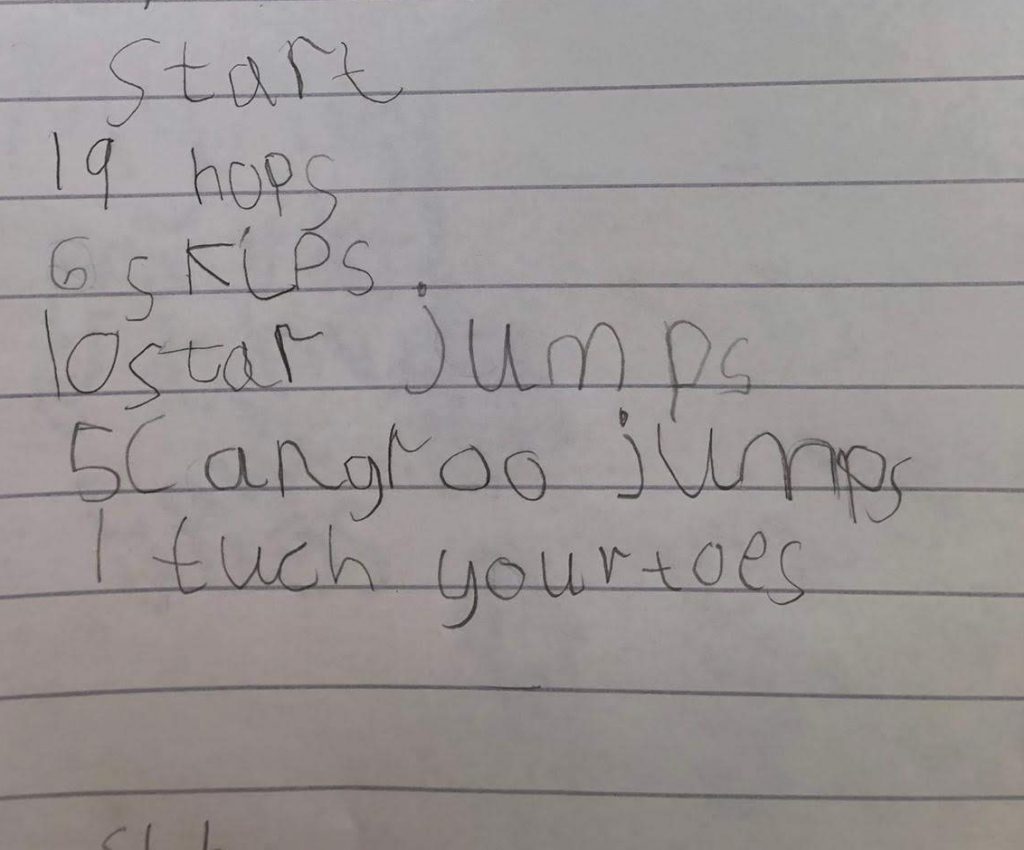 start
19 hops
6 skips.
10 star jumps
5 Cangroo jumps
1 tuch your toes